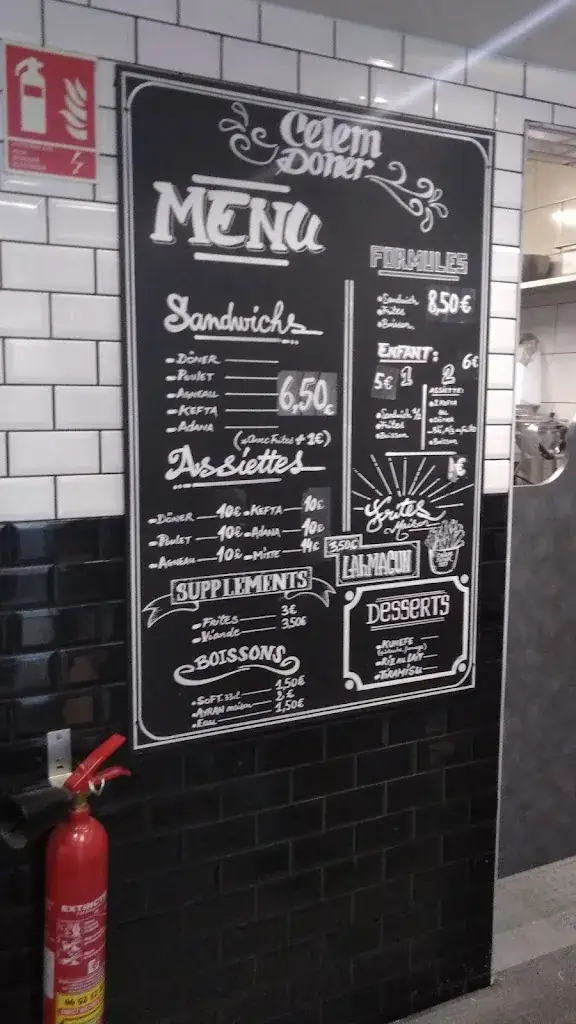 Celem
Doner
MENU
Sandwichs
- DÖNER
- POULET
- AGNEAU
- KEFTA
- ADANA
6,50€
(- Avec Frites + 1€)
Assiettes
- DÖNER 10€ - KEFTA 10€
- POULET 10€ - ADANA 10€
- AGNEAU 10€ - MIXTE 14€
SUPPLEMENTS
- FRITES 3€
- Viande 3,50€
BOISSONS
- SOFT 33cl 1,50€
- AYRAN maison 2€
- EAU 1,50€
FORMULES
- Sandwich
- Frites
- Boisson
8,50€
ENFANT :
5€ 1
- Sandwich ½
- Frites
- Boisson
6€
2
ASSIETTE:
- 2 KEFTA
ou
DÖNER
- Boisson
€
Frites
Maison
3,50€
LAHMACUN
DESSERTS
- KUNEFE
- RIZ AU LAIT
- TIRAMISU
EXTINCTEUR